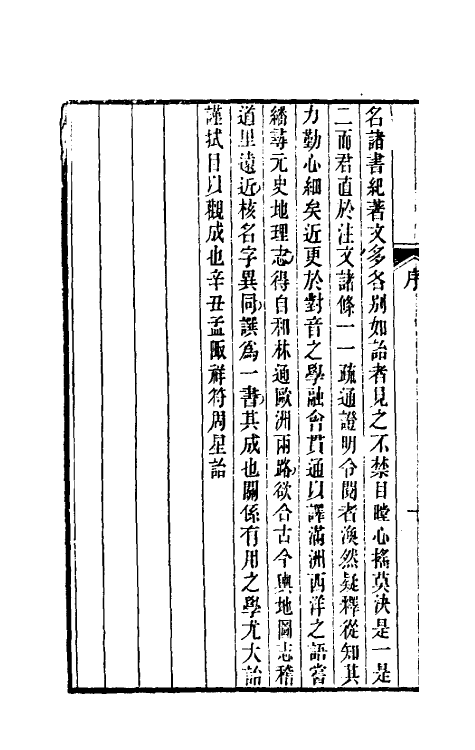 名諸書紀著文多各別如詒者見之不禁目瞠心搖莫決是一是
二而君直於注文諸條一一疏通證明令閱者渙然疑釋從知其
力勤心細矣近更於對音之學融會貫通以譯滿洲西洋之語嘗
繙尋元史地理志得自和林通歐洲兩路欲合古今輿地圖志稽
道里遠近核名字異同譔爲一書其成也關係有用之學尤大詒
謹拭目以觀成也辛丑孟陬祥符周星詒
序